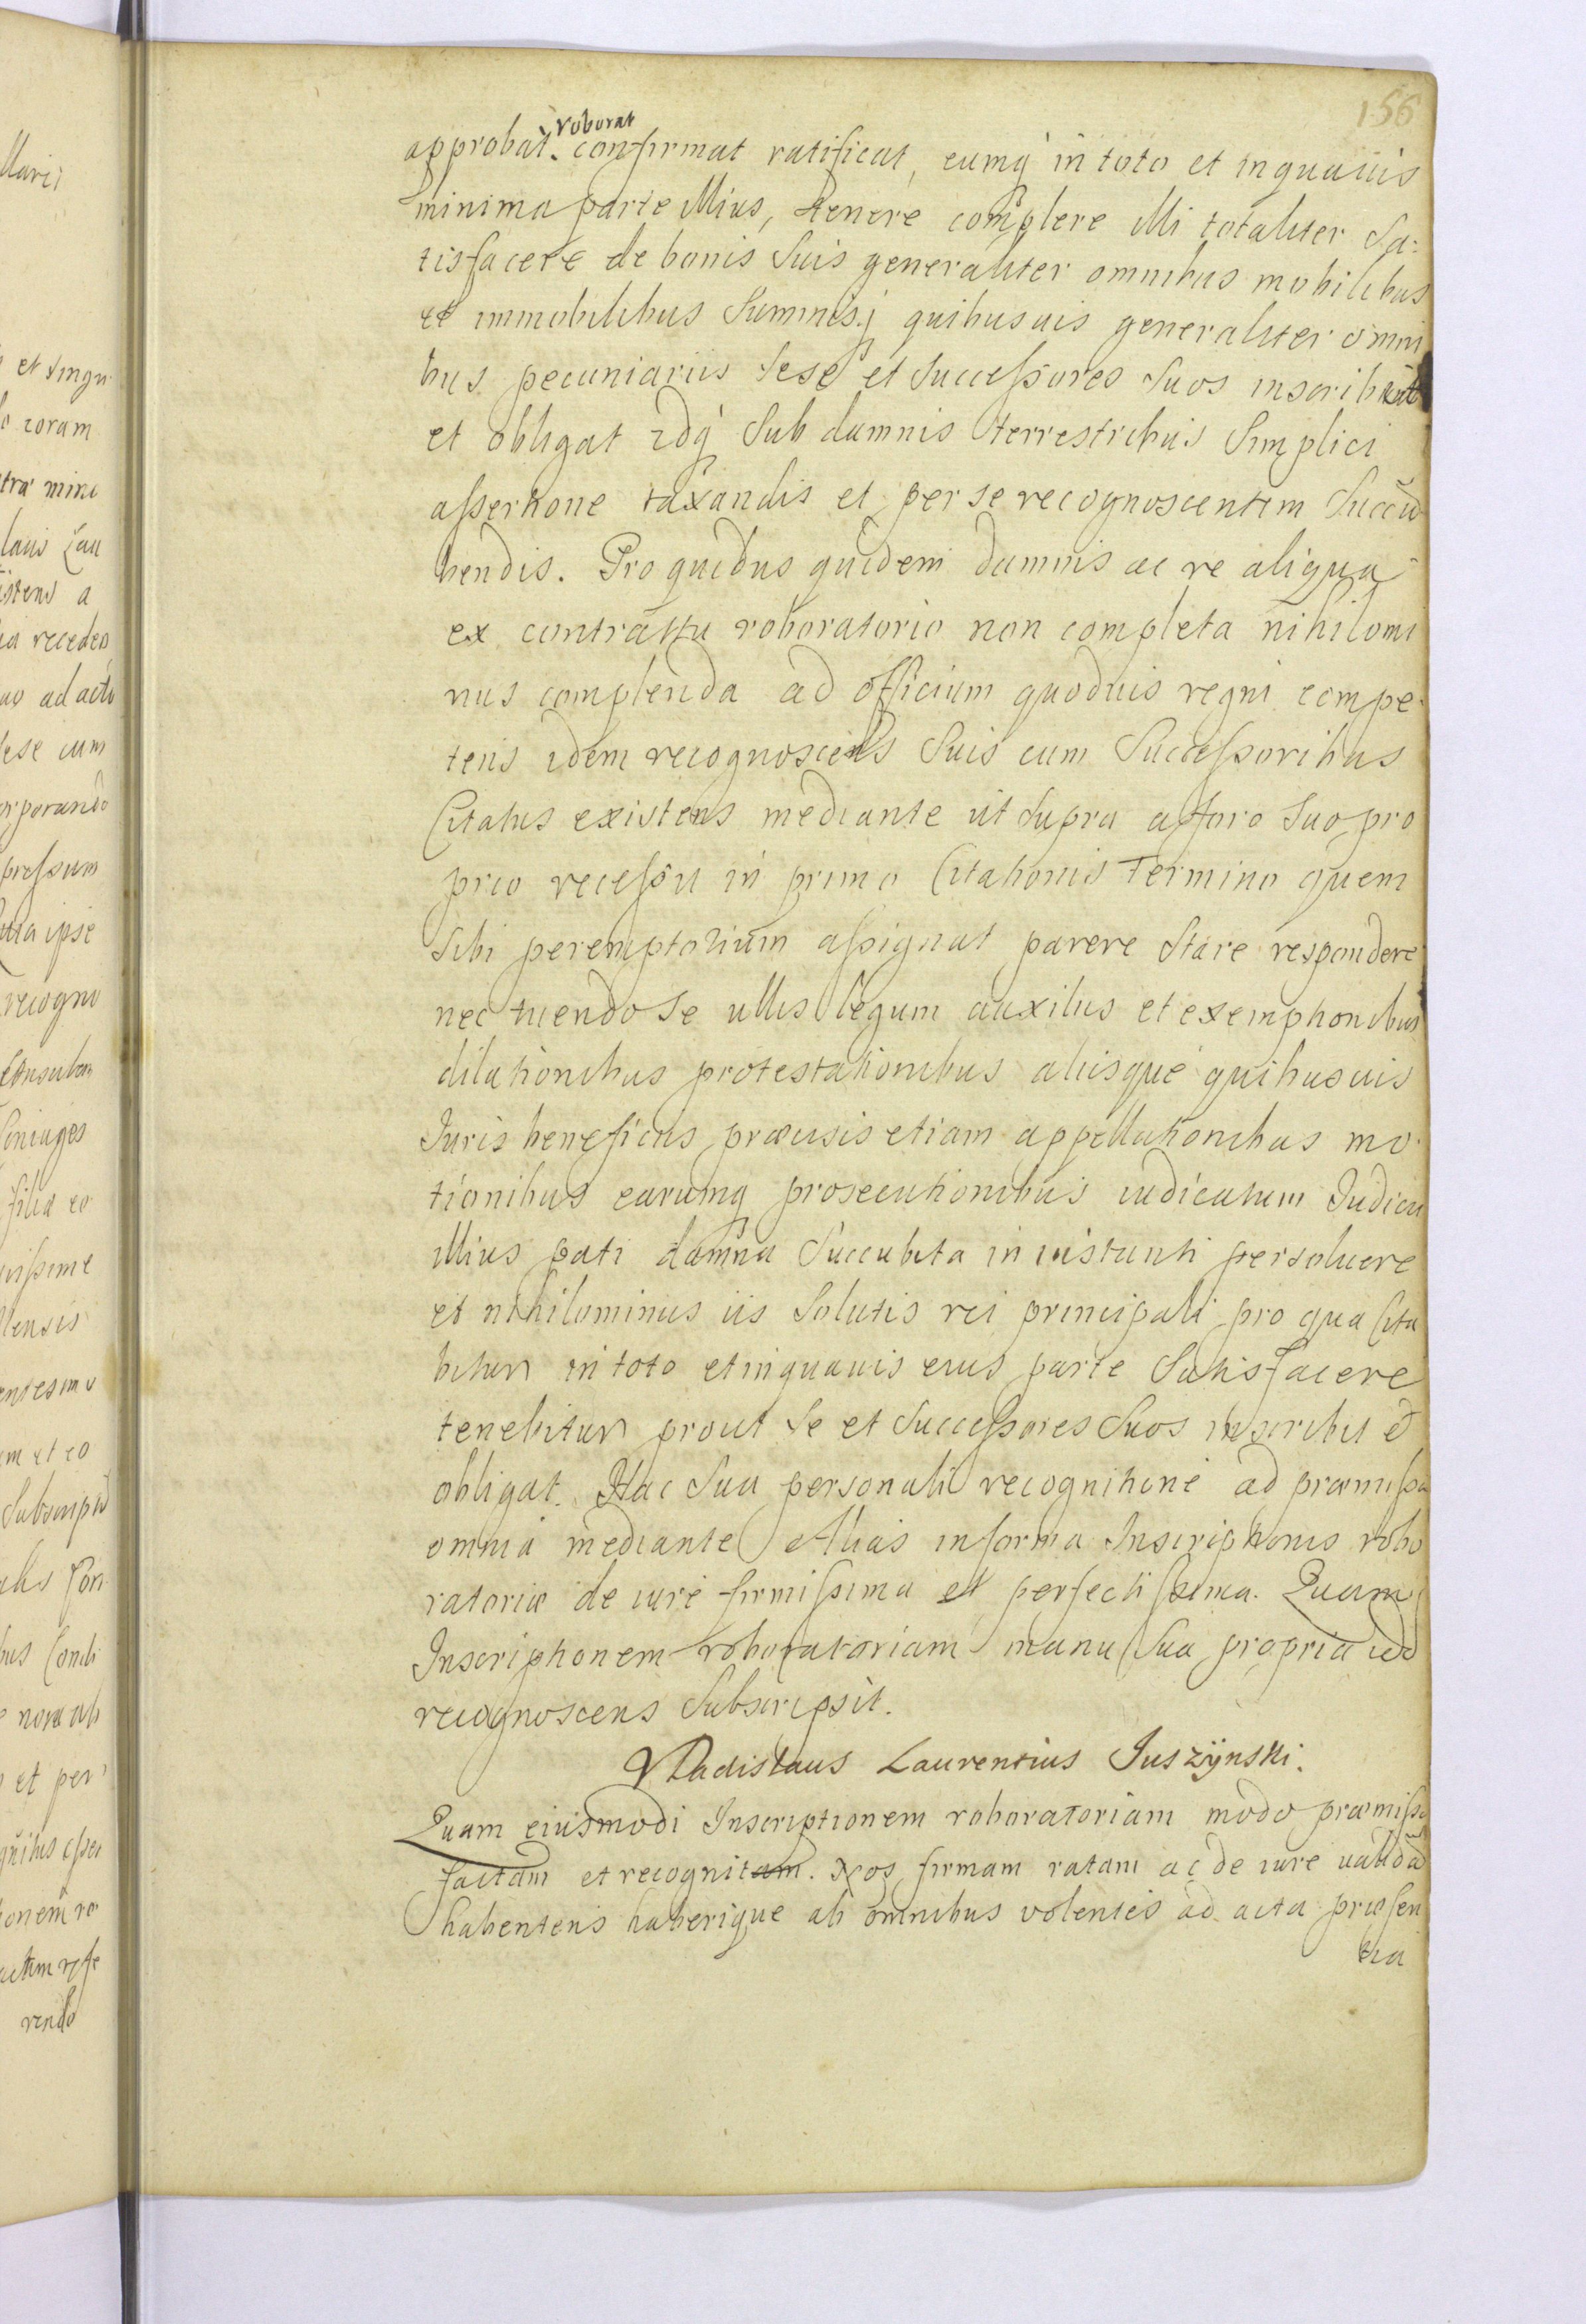 156
roborat
approbat. confirmat ratificat, eumq in toto et in quauis
minima parte illius, tenere complere illi totaliter Sa:
tisfacere de bonis Suis generaliter omnibus mobilibus
et immobilibus Summisq quibusuis generaliter omni
bus pecuniariis Sese et Successores Suos inscribit
et obligat idq Sub damnis terrestribus Simplici
assertione taxandis et per se recognoscentem Succu
bendis. Pro quibus quidem damnis ac re aliqua
ex contractu roboratorio non completa nihilomi
nus complenda ad officium quoduis regni compe
tens idem recognoscens Suis cum Successoribus
Citatus existens mediante ut Supra a foro Suo pro
prio recessu in primo Citationis Termino quem
Sibi peremptorium assignat parere Stare respondere
nec tuendo Se ullis legum auxiliis et exemptionibus
dilationibus protestationibus aliisque quibusuis
Iuris beneficiis præcisis etiam appellationibus mo
tionibus earumq prosecutionibus iudicatum Iudicii
illius pati damna Succubita in instanti persoluere
et nihilominus iis Solutis rei principali pro qua Cita
bitur in toto et in quauis eius parte Satisfacere
tenebitur prout Se et Successores Suos inscribit et
obligat. Hac Sua personali recognitione ad præmissa
omnia mediante Alias in forma Inscriptionis robo
ratoriæ de iure firmissima et perfectissima. Quam
Inscriptionem roboratoriam manu Sua propria id
recognoscens Subscripsit.
Vladislaus Laurentius Juszÿnski.
Quam eiusmodi Inscriptionem roboratoriam modo præmisso
factam et recognitam. Nos firmam ratam ac de iure validam
habentens haberique ab omnibus volentes ad acta præsen
tia